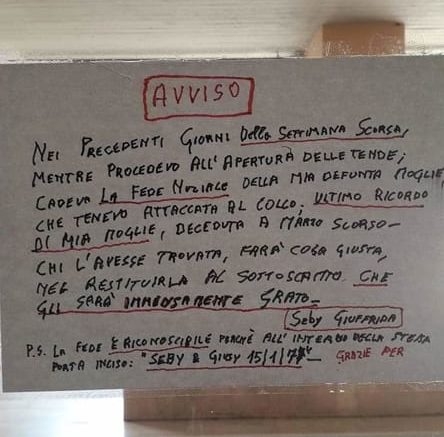 AVVISO
NEI PRECEDENTI GIORNI DELLA SETTIMANA SCORSA,
MENTRE PROCEDEVO ALL'APERTURA DELLE TENDE;
CADEVA LA FEDE NUZIALE DELLA MIA DEFUNTA MOGLIE,
CHE TENEVO ATTACCATA AL COLLO; ULTIMO RICORDO
DI MIA MOGLIE, DECEDUTA A MARZO SCORSO-
CHI L'AVESSE TROVATA, FARA' COSA GIUSTA,
NEL RESTITUIRLA AL SOTTOSCRITTO. CHE
GLI SARÀ IMMENSAMENTE GRATO-
SEBY GIUFFRIDA
P.S. LA FEDE È RICONOSCIBILE PERCHÈ ALL'INTERNO DELLA STESSA
PORTA INCISO: "SEBY E GIUSY 15/1/77"- GRAZIE PER